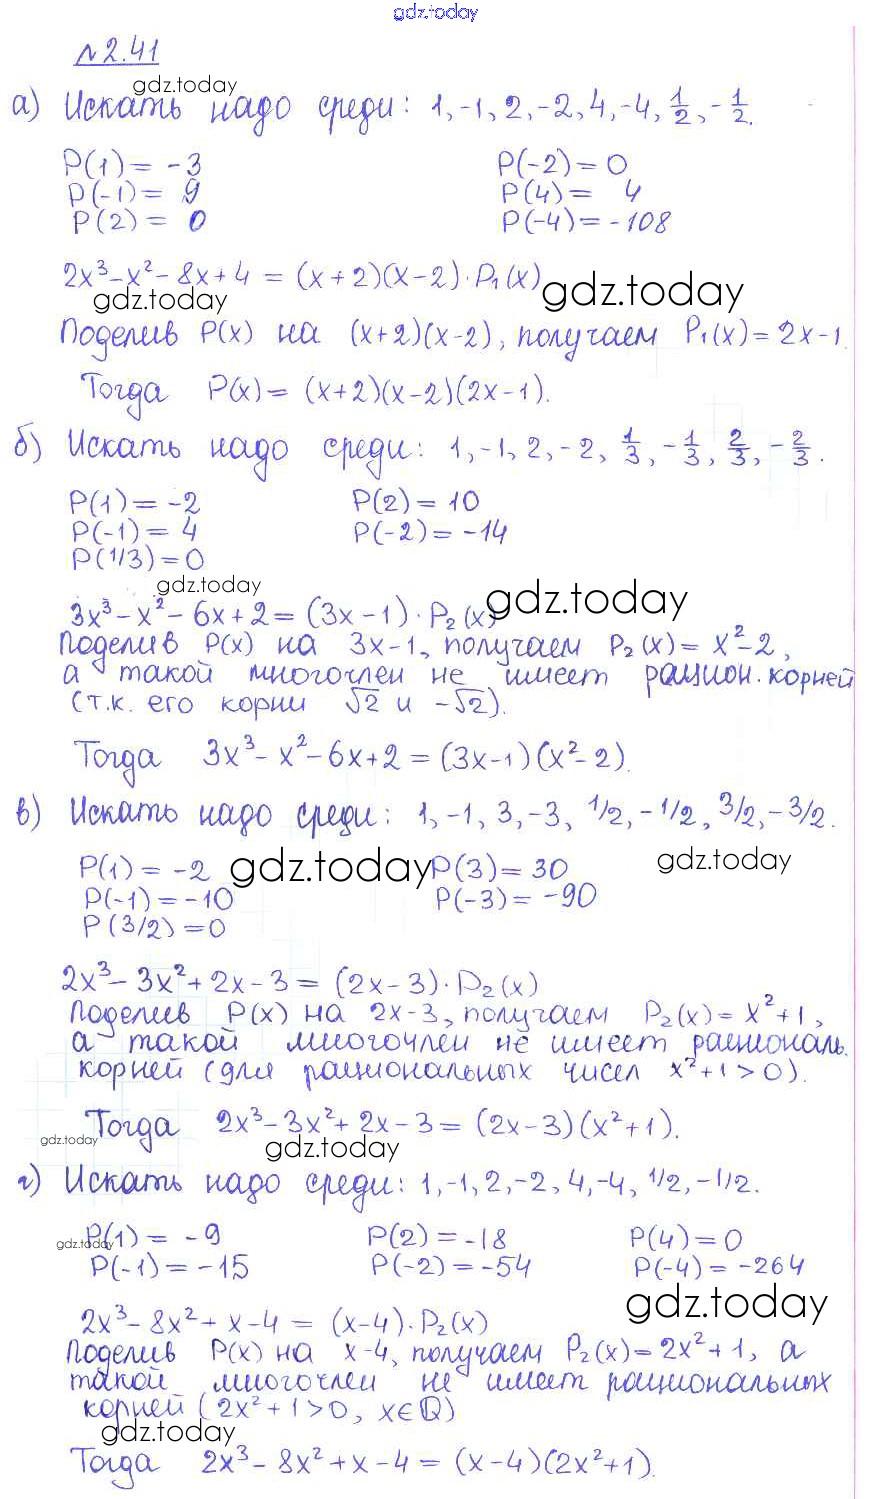 gdz.today
№2.41
gdz.today
а) Искать надо среди: 1, -1, 2, -2, 4, -4, 1/2, -1/2.
P(1) = -3 P(-2) = 0
P(-1) = 9 P(4) = 4
P(2) = 0 P(-4) = -108
2x³-x²-8x+4 = (x+2)(x-2)·P₁(x)
gdz.today gdz.today
Поделив P(x) на (x+2)(x-2), получаем P₁(x) = 2x-1.
Тогда P(x) = (x+2)(x-2)(2x-1).
б) Искать надо среди: 1, -1, 2, -2, 1/3, -1/3, 2/3, -2/3.
P(1) = -2 P(2) = 10
P(-1) = 4 P(-2) = -14
P(1/3) = 0
gdz.today gdz.today
3x³-x²-6x+2 = (3x-1)·P₂(x)
Поделив P(x) на 3x-1, получаем P₂(x) = x²-2,
а такой многочлен не имеет рацион. корней
(т.к. его корни √2 и -√2).
Тогда 3x³-x²-6x+2 = (3x-1)(x²-2).
в) Искать надо среди: 1, -1, 3, -3, 1/2, -1/2, 3/2, -3/2.
P(1) = -2 gdz.today P(3) = 30 gdz.today
P(-1) = -10 P(-3) = -90
P(3/2) = 0
2x³-3x²+2x-3 = (2x-3)·P₂(x)
Поделив P(x) на 2x-3, получаем P₂(x) = x²+1,
а такой многочлен не имеет рациональ.
корней (для рациональных чисел x²+1>0).
Тогда 2x³-3x²+2x-3 = (2x-3)(x²+1).
gdz.today gdz.today
г) Искать надо среди: 1, -1, 2, -2, 4, -4, 1/2, -1/2.
gdz.today P(1) = -9 P(2) = -18 P(4) = 0
P(-1) = -15 P(-2) = -54 P(-4) = -264
gdz.today
2x³-8x²+x-4 = (x-4)·P₂(x)
Поделив P(x) на x-4, получаем P₂(x) = 2x²+1, а
такой многочлен не имеет рациональных
корней (2x²+1>0, x∈ℚ)
gdz.today
Тогда 2x³-8x²+x-4 = (x-4)(2x²+1).